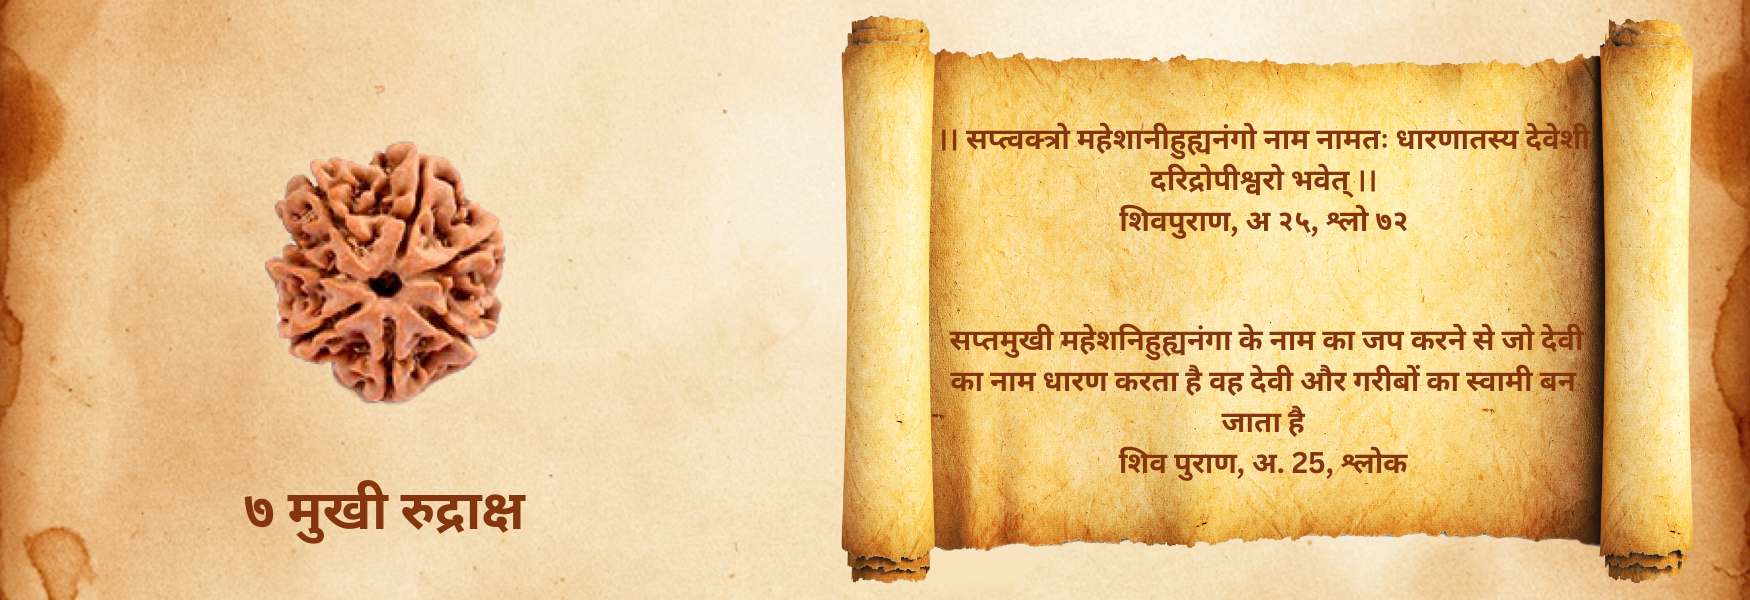 ७ मुखी रुद्राक्ष
।। सप्त्वक्त्रो महेशानीहुह्यनंगो नाम नामतः धारणातस्य देवेशी
दरिद्रोपीश्वरो भवेत् ।।
शिवपुराण, अ २५, श्लो ७२
सप्तमुखी महेशनिहुह्यनंगा के नाम का जप करने से जो देवी
का नाम धारण करता है वह देवी और गरीबों का स्वामी बन
जाता है
शिव पुराण, अ. 25, श्लोक